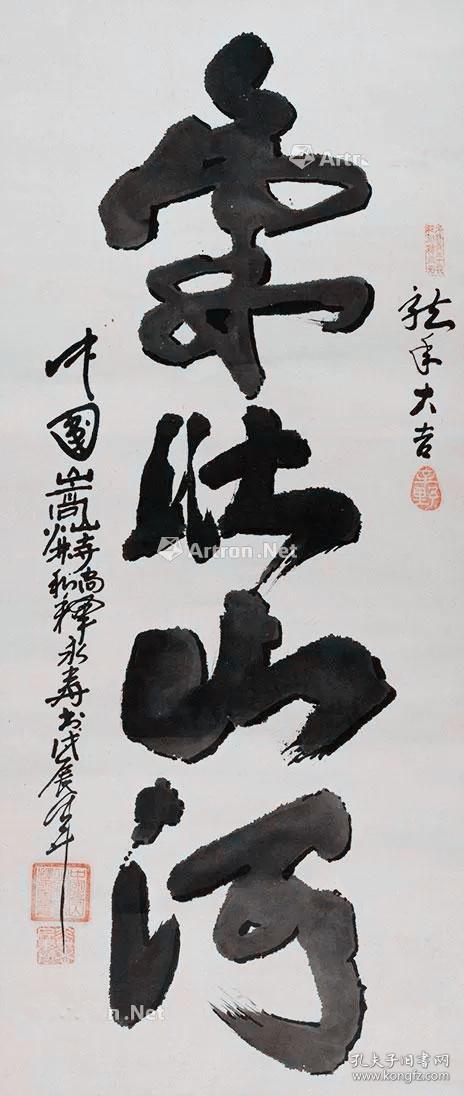 龍年大吉
氣壮山河
中國嵩山少林寺和尚釋永寿书戊辰年
Artron.Net
Artron.Net
n.Net
n.Net
孔夫子旧书网
kongfz.com